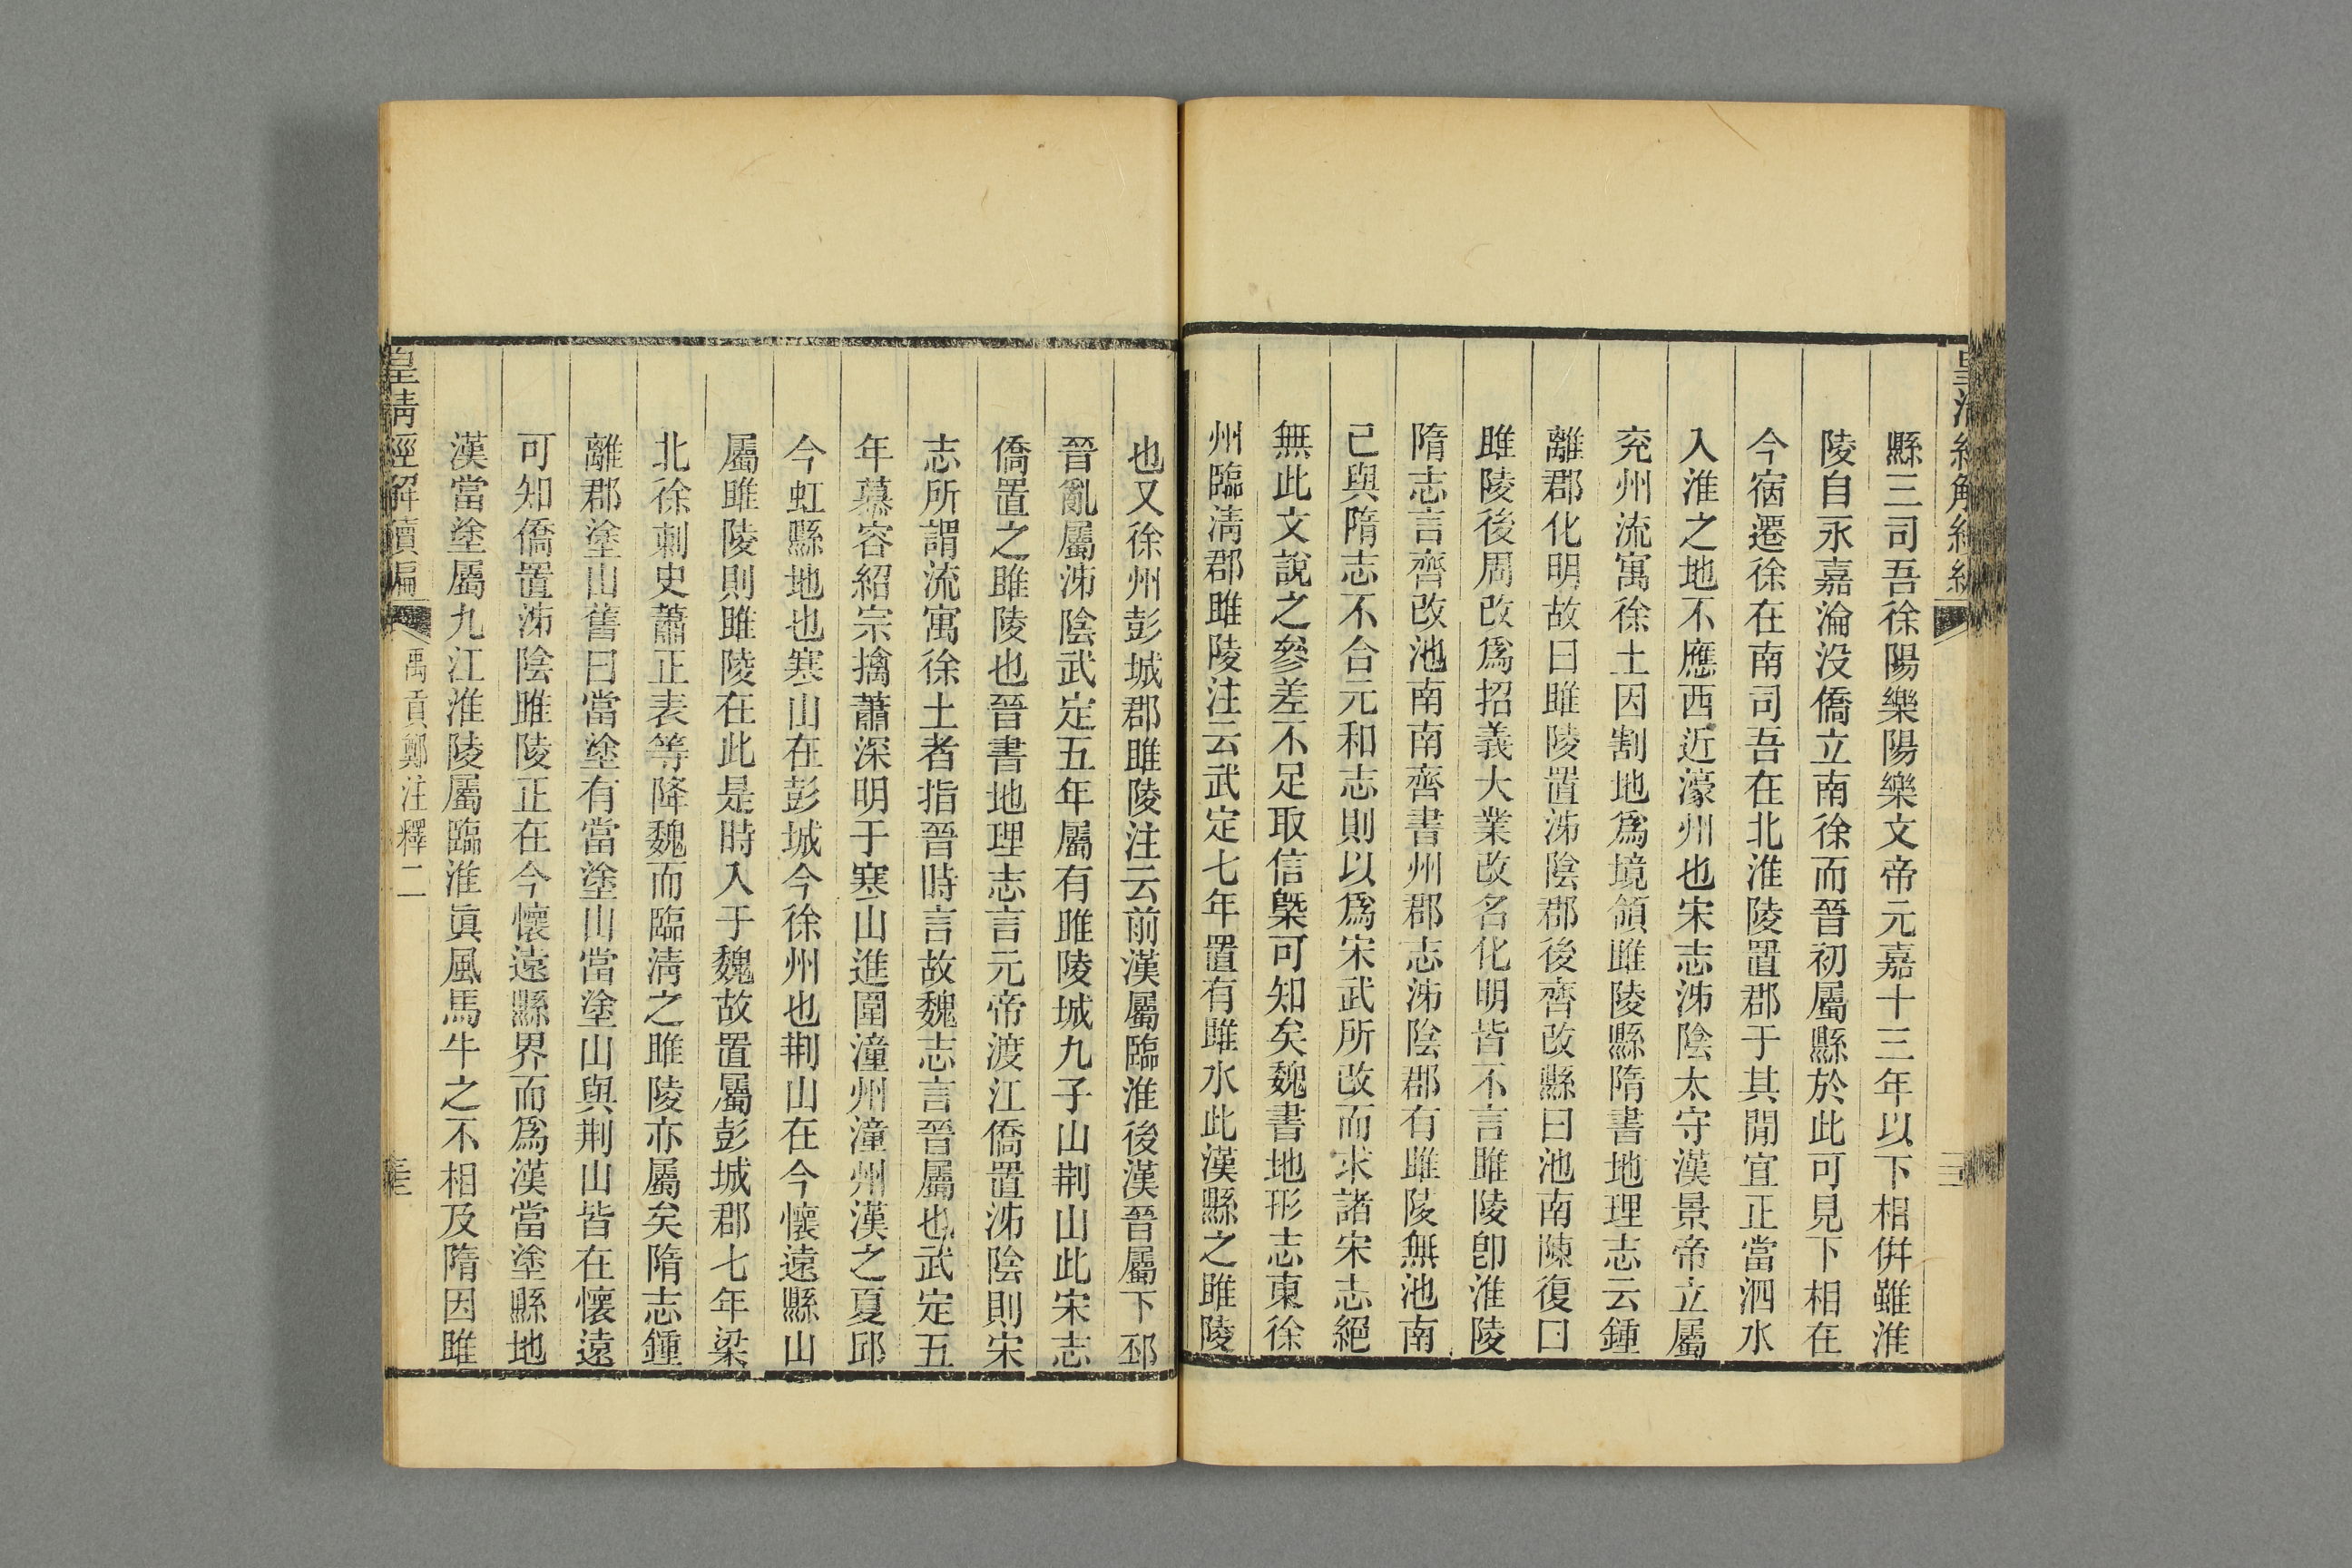 縣三司吾徐陽樂陽樂文帝元嘉十三年以下相併雖淮
陵自永嘉淪没僑立南徐而晉初屬縣於此可見下相在
今宿遷徐在南司吾在北淮陵置郡于其閒宜正當泗水
入淮之地不應西近濠州也宋志沛陰太守漢景帝立屬
兖州流寓徐土因割地爲境領睢陵縣隋書地理志云鍾
離郡化明故曰睢陵置沛陰郡後齊改縣曰池南陳復曰
睢陵後周改爲招義大業改名化明皆不言睢陵卽淮陵
隋志言齊改池南南齊書州郡志沛陰郡有睢陵無池南
已與隋志不合元和志則以爲宋武所改而求諸宋志絕
無此文說之參差不足取信槩可知矣魏書地形志東徐
州臨淸郡睢陵注云武定七年置有睢水此漢縣之睢陵
也又徐州彭城郡睢陵注云前漢屬臨淮後漢晉屬下邳
晉亂屬沛陰武定五年屬有睢陵城九子山荆山此宋志
僑置之睢陵也晉書地理志言元帝渡江僑置沛陰則宋
志所謂流寓徐土者指晉時言故魏志言晉屬也武定五
年慕容紹宗擒蕭深明于寒山進圍潼州潼州漢之夏邱
今虹縣地也寒山在彭城今徐州也荆山在今懷遠縣山
屬睢陵則睢陵在此是時入于魏故置屬彭城郡七年梁
北徐刺史蕭正表等降魏而臨淸之睢陵亦屬矣隋志鍾
離郡塗山舊曰當塗有當塗山當塗山與荆山皆在懷遠
可知僑置沛陰睢陵正在今懷遠縣界而爲漢當塗縣地
漢當塗屬九江淮陵屬臨淮眞風馬牛之不相及隋因睢
皇清經解續編
禹貢鄭注釋二